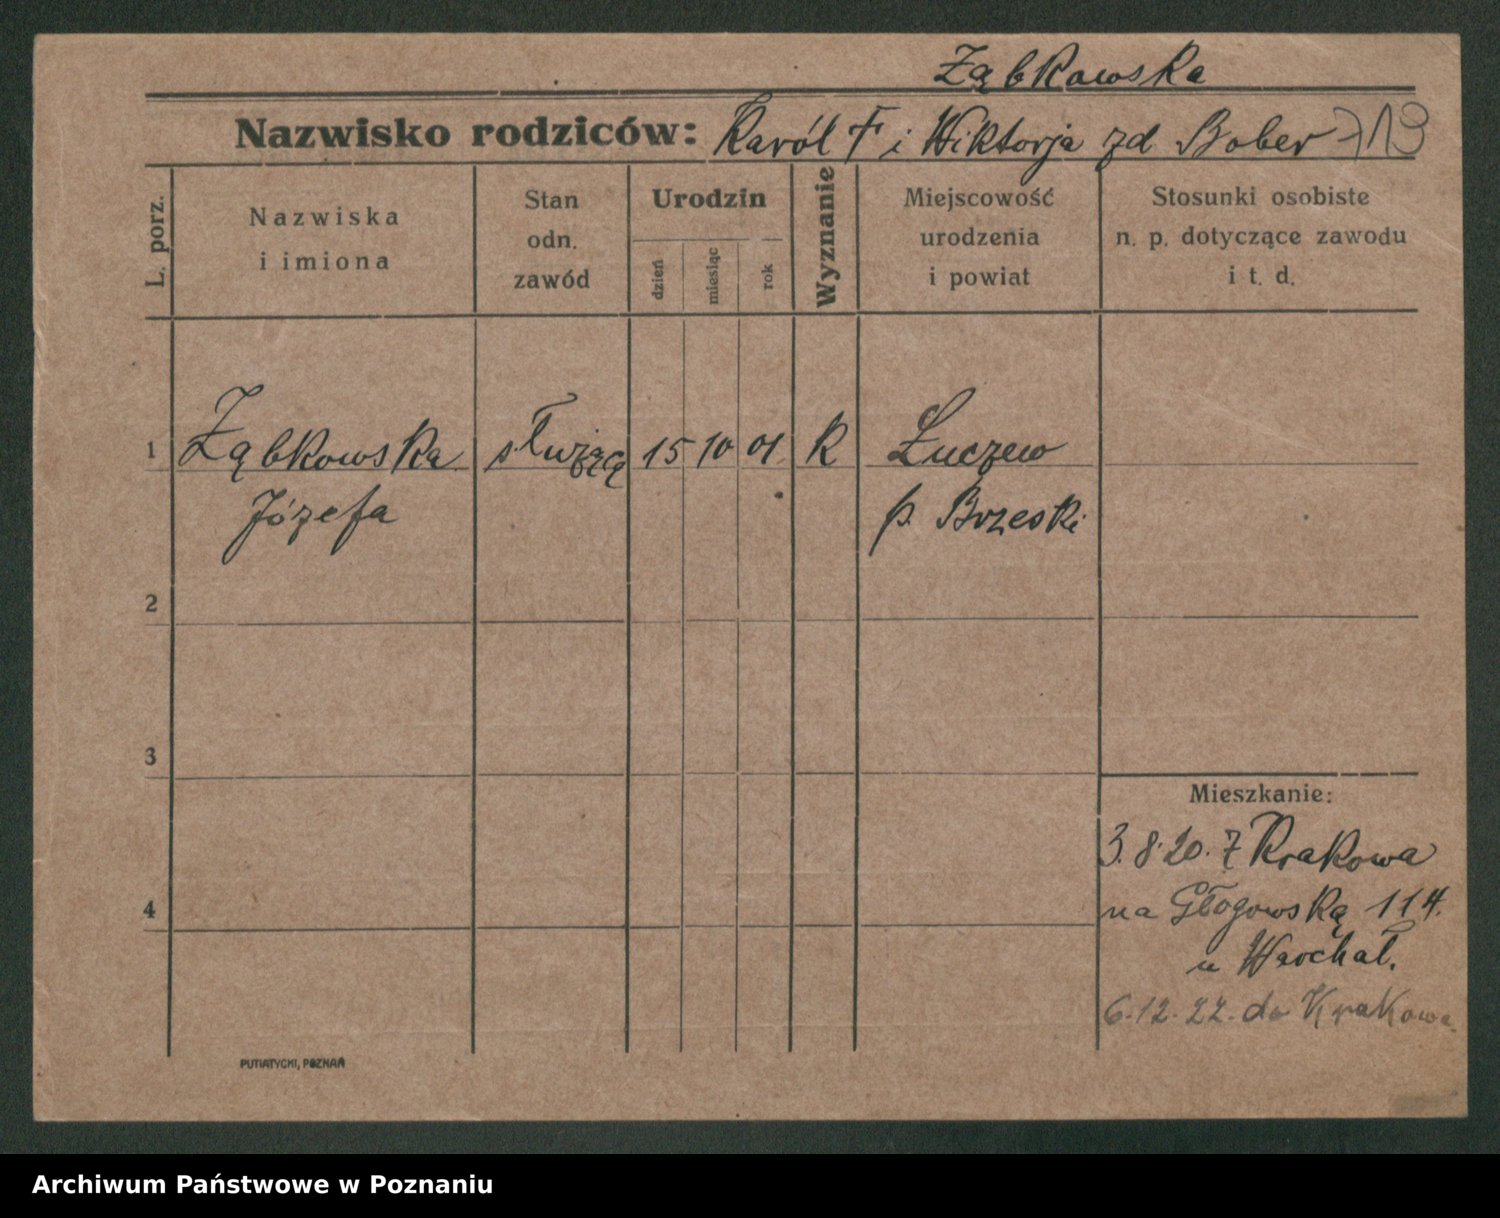 Ząbkowska
Nazwisko rodziców: Karól F i Wiktorja zd Bober 719
L. porz.
Nazwiska
i imiona
Stan
odn.
zawód
Urodzin
dzień
miesiąc
rok
Wyznanie
Miejscowość
urodzenia
i powiat
Stosunki osobiste
n. p. dotyczące zawodu
i t. d.
1 Ząbkowska służącą 15 10 01 K Łuczew
Józefa p. Brzeski
2
3
Mieszkanie:
3.8.20. Z Krakowa
na Głogowską 114.
4
u Warchał.
6.12.22. do Krakowa.
PUTIATYCKI, POZNAŃ
Archiwum Państwowe w Poznaniu